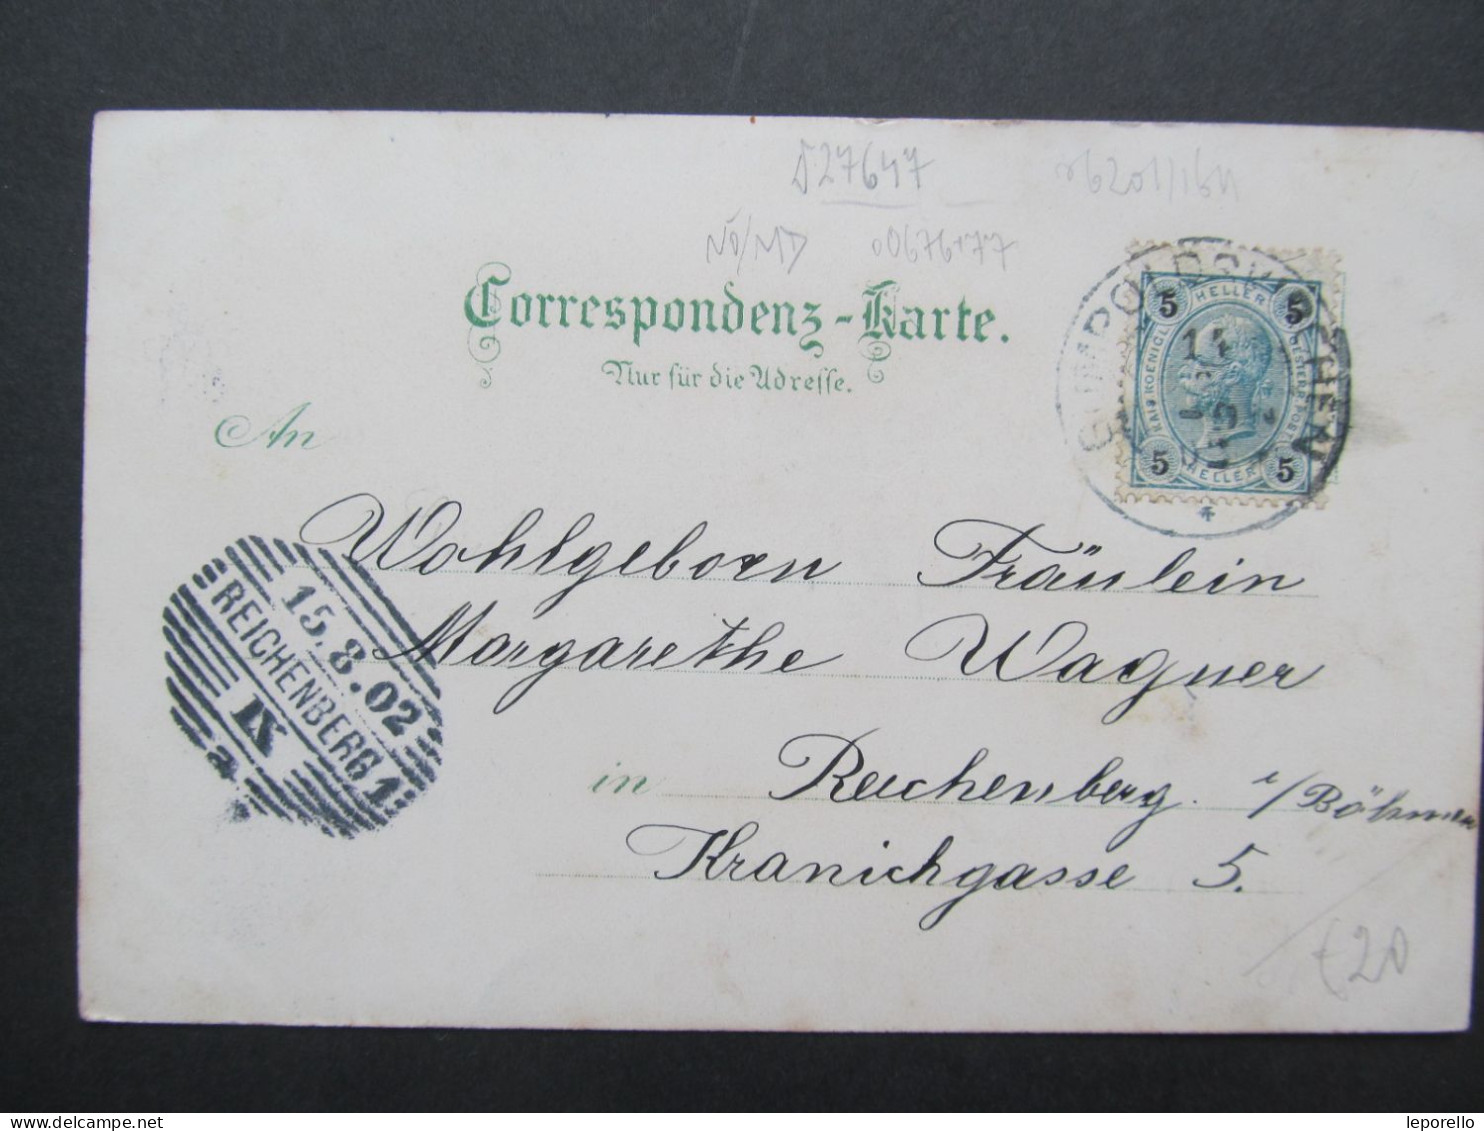 527647
ND/MD 00676477
Correspondenz-Karte.
Nur für die Adresse.
An
GUMPOLDSKIRCHEN
14
5 HELLER 5
KAIS KOENIGL OESTERR POST
5 HELLER 5
Wohlgeborn Fräulein
Margarethe Wagner
in Reichenberg i/Böhmen
Kranichgasse 5.
15.8.02
REICHENBERG 1
IX
a
€20
www.delcampe.net
leporello